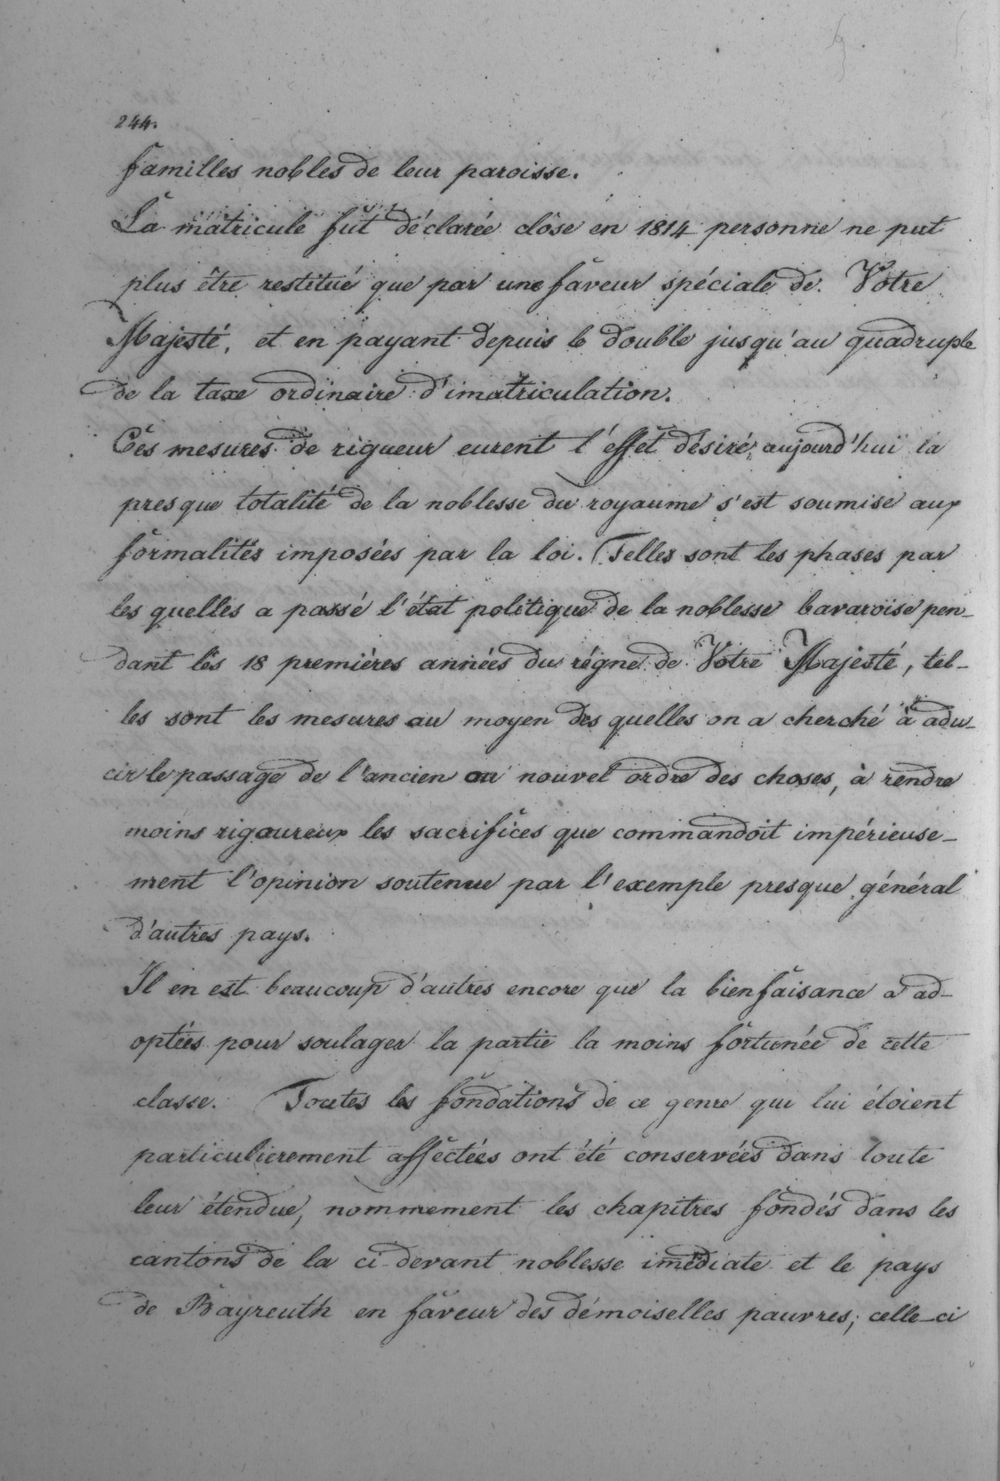 244.
familles nobles de leur paroisse.
La matricule fut déclarée close en 1814 personne ne put
plus être restitué que par une faveur spéciale de Votre
Majesté, et en payant depuis le double jusqu'au quadruple
de la taxe ordinaire d'imatriculation.
Ces mesures de rigueur eurent l'effet désiré, aujourd'hui la
presque totalité de la noblesse du royaume s'est soumise aux
formalités imposées par la loi. Telles sont les phases par
les quelles a passé l'état politique de la noblesse bavaroise pen-
dant les 18 premiéres années du régne de Votre Majesté, tel-
les sont les mesures au moyen des quelles on a cherché à adu-
cir le passage de l'ancien au nouvel ordre des choses, à rendre
moins rigoureux les sacrifices que commandoit impérieuse-
ment l'opinion soutenue par l'exemple presque général
d'autres pays.
Il en est beaucoup d'autres encore que la bienfaisance a ad-
optées pour soulager la partie la moins fortunée de cette
classe. Toutes les fondations de ce genre qui lui étoient
particulierement affectées ont été conservées dans toute
leur étendue, nommement les chapitres fondés dans les
cantons de la ci-devant noblesse imédiate et le pays
de Bayreuth en faveur des démoiselles pauvres; celle-ci